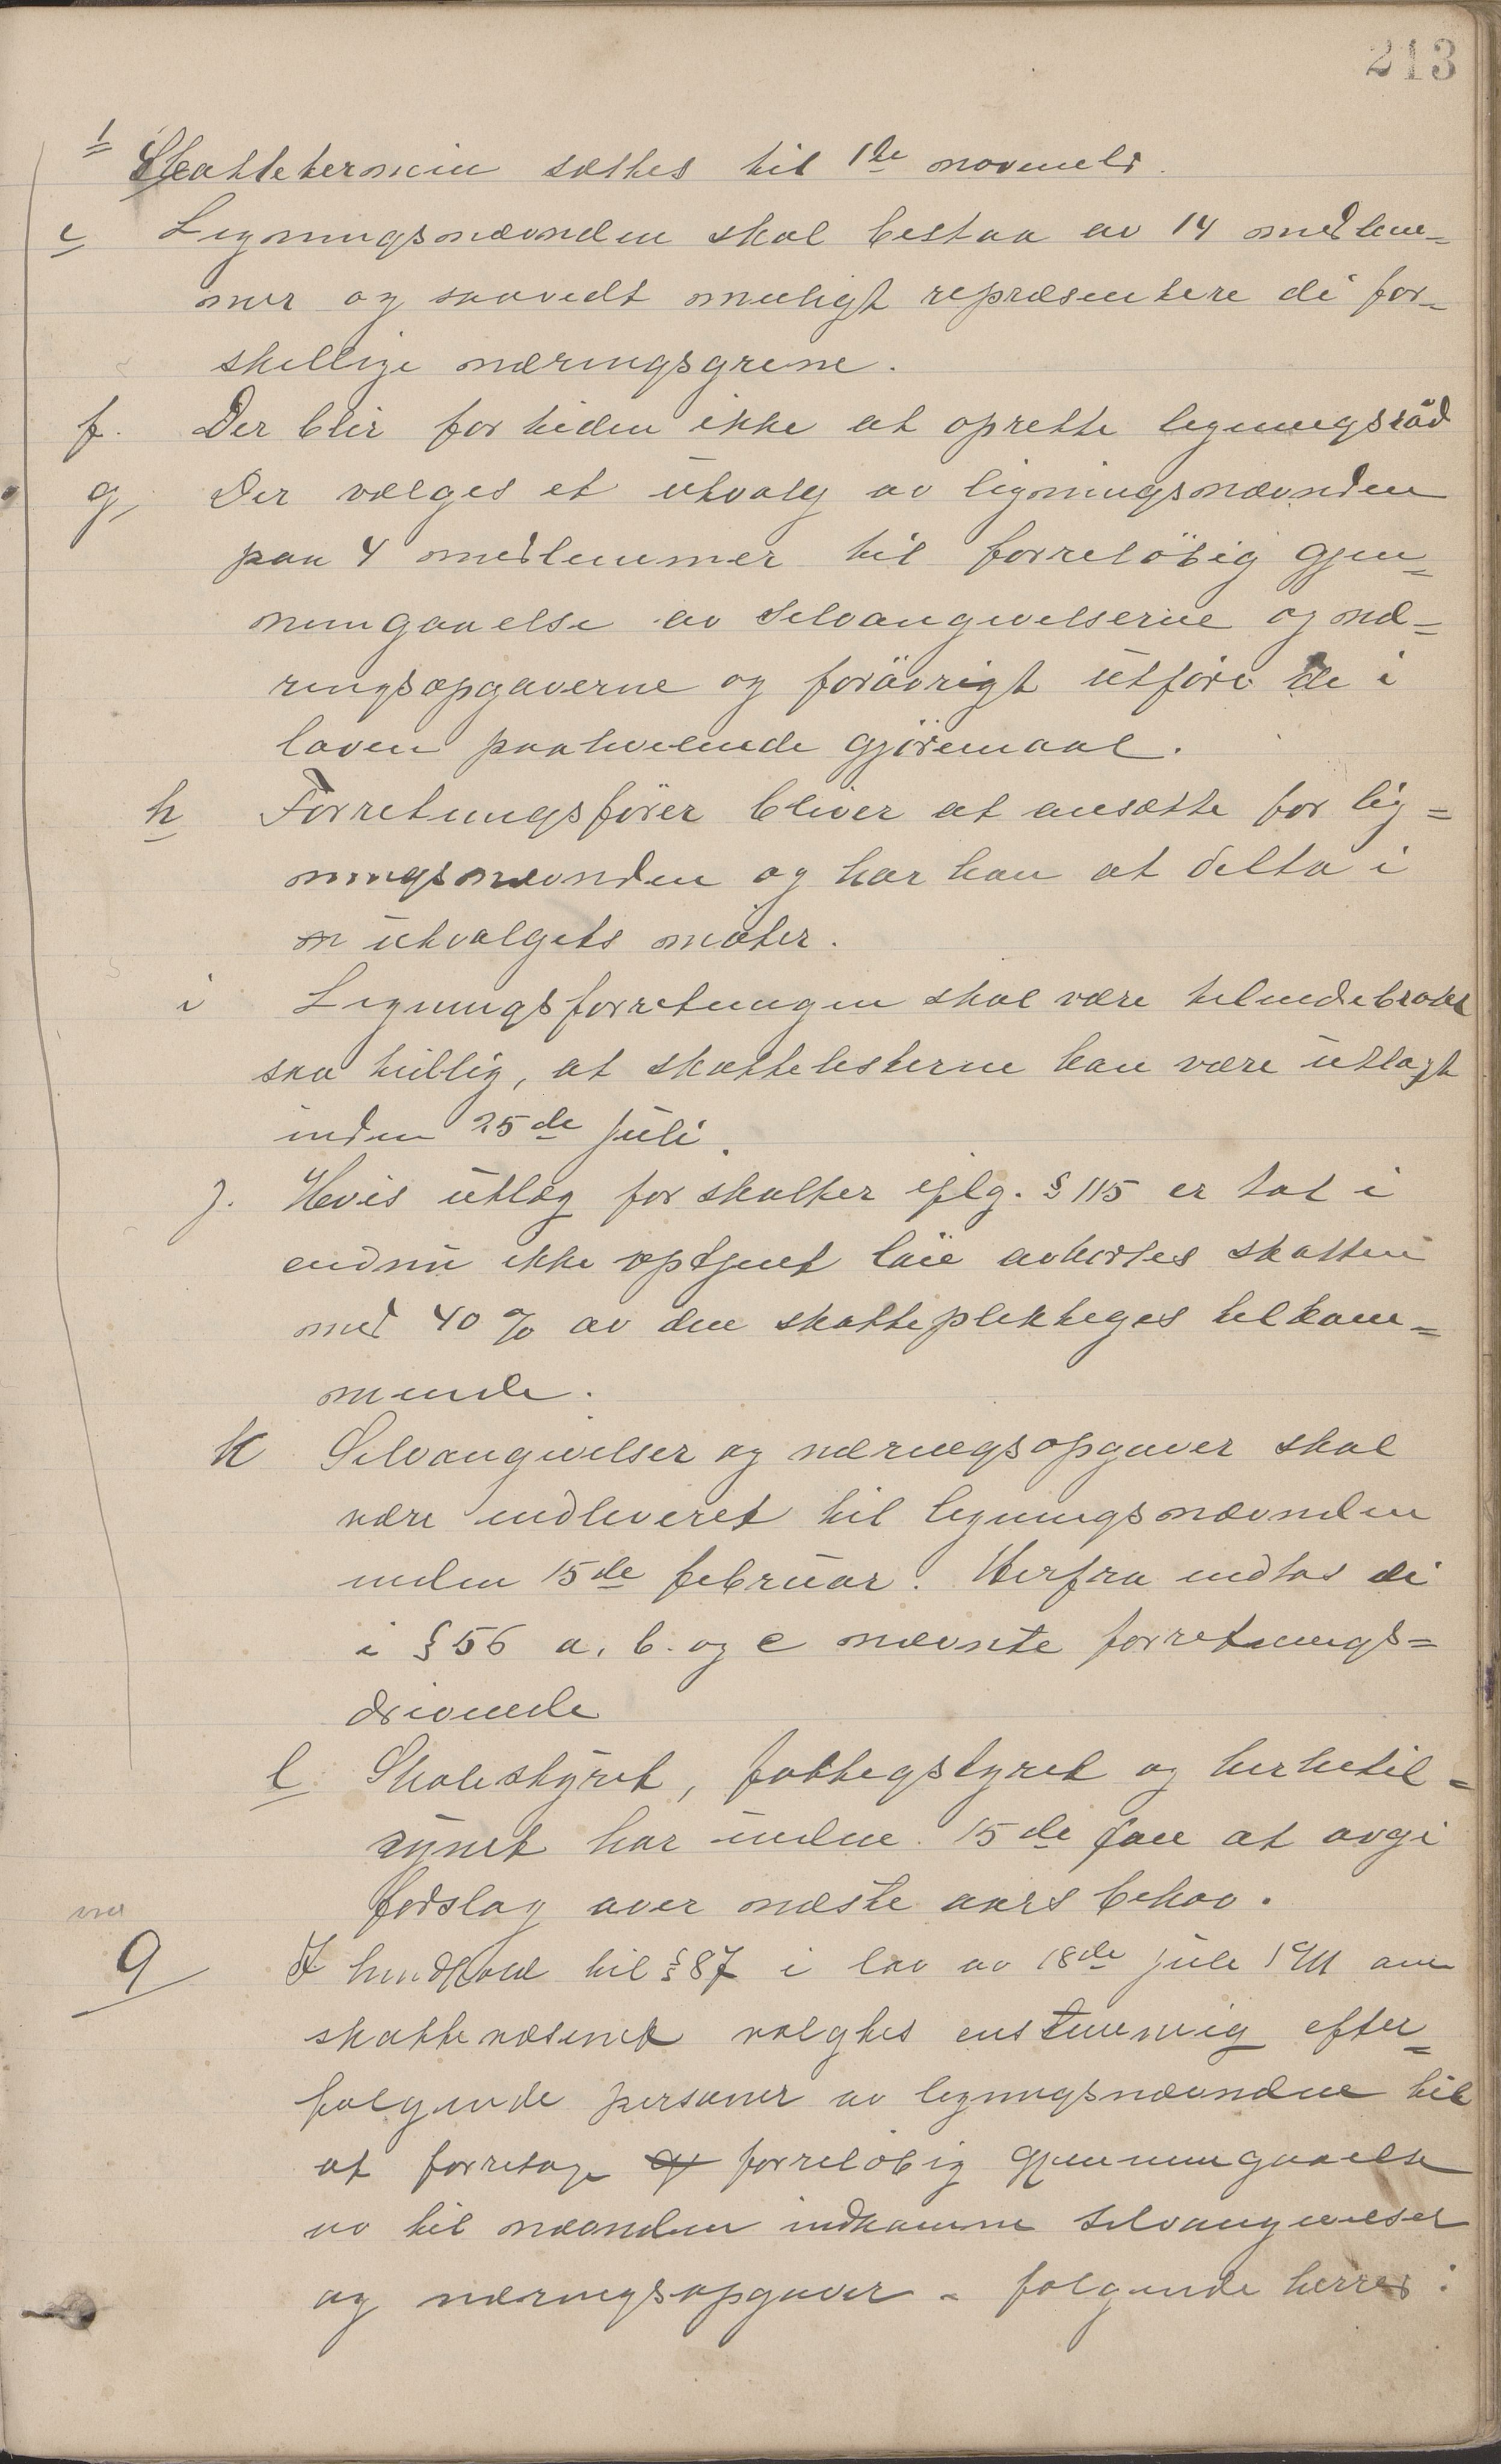 213
1 Skattetermin sættes til 1ste novembr.
e Ligningsnævnden skal bestaa av 14 medlem-
mer og saavidt muligt repræsentere de for-
skellige næringsgrene.
f. Der blir for tiden ikke at oprette ligningsråd
g, Der vælges et utvalg av ligningsnævnden
paa 4 medlemmer til forreløbig gjen-
nemgaaelse av selvangivelserne og næ-
ringsopgaverne og forøvrigt utføre de i
loven paahvilende gjøremaal.
h Forretningsfører bliver at ansætte for lig=
ningsnævnden og har han at delta i
utvalgets møter.
i Ligningsforretningen skal være tilendebragt
saa tidlig, at skattelisterne kan være utlagt
inden 25de juli.
j. Hvis utlæg for skatter iflg. § 115 er tat i
endnu ikke optjent løn avkortes skatten
med 40 % av den skattepliktiges tilkom=
mende.
k Selvangivelser og næringsopgaver skal
være indleveret til ligningsnævnden
inden 15de februar. Herfra indtas de
i § 56 a, b. og c nævnte forretnings=
drivende
l Skolestyret, fattigstyret og kirketil=
synet har inden 15de jan at avgi
forslag over næste aars behov.
9 I henhold til § 87 i lov av 18de juli 1911 om
skattevæsenet valgtes enstemmig efter=
følgende personer av ligningsnævnden til
at forretage forreløbig gjennemgaaelse
av til nævnden indkomne selvangivelser
og næringsopgaver - følgende herrer: